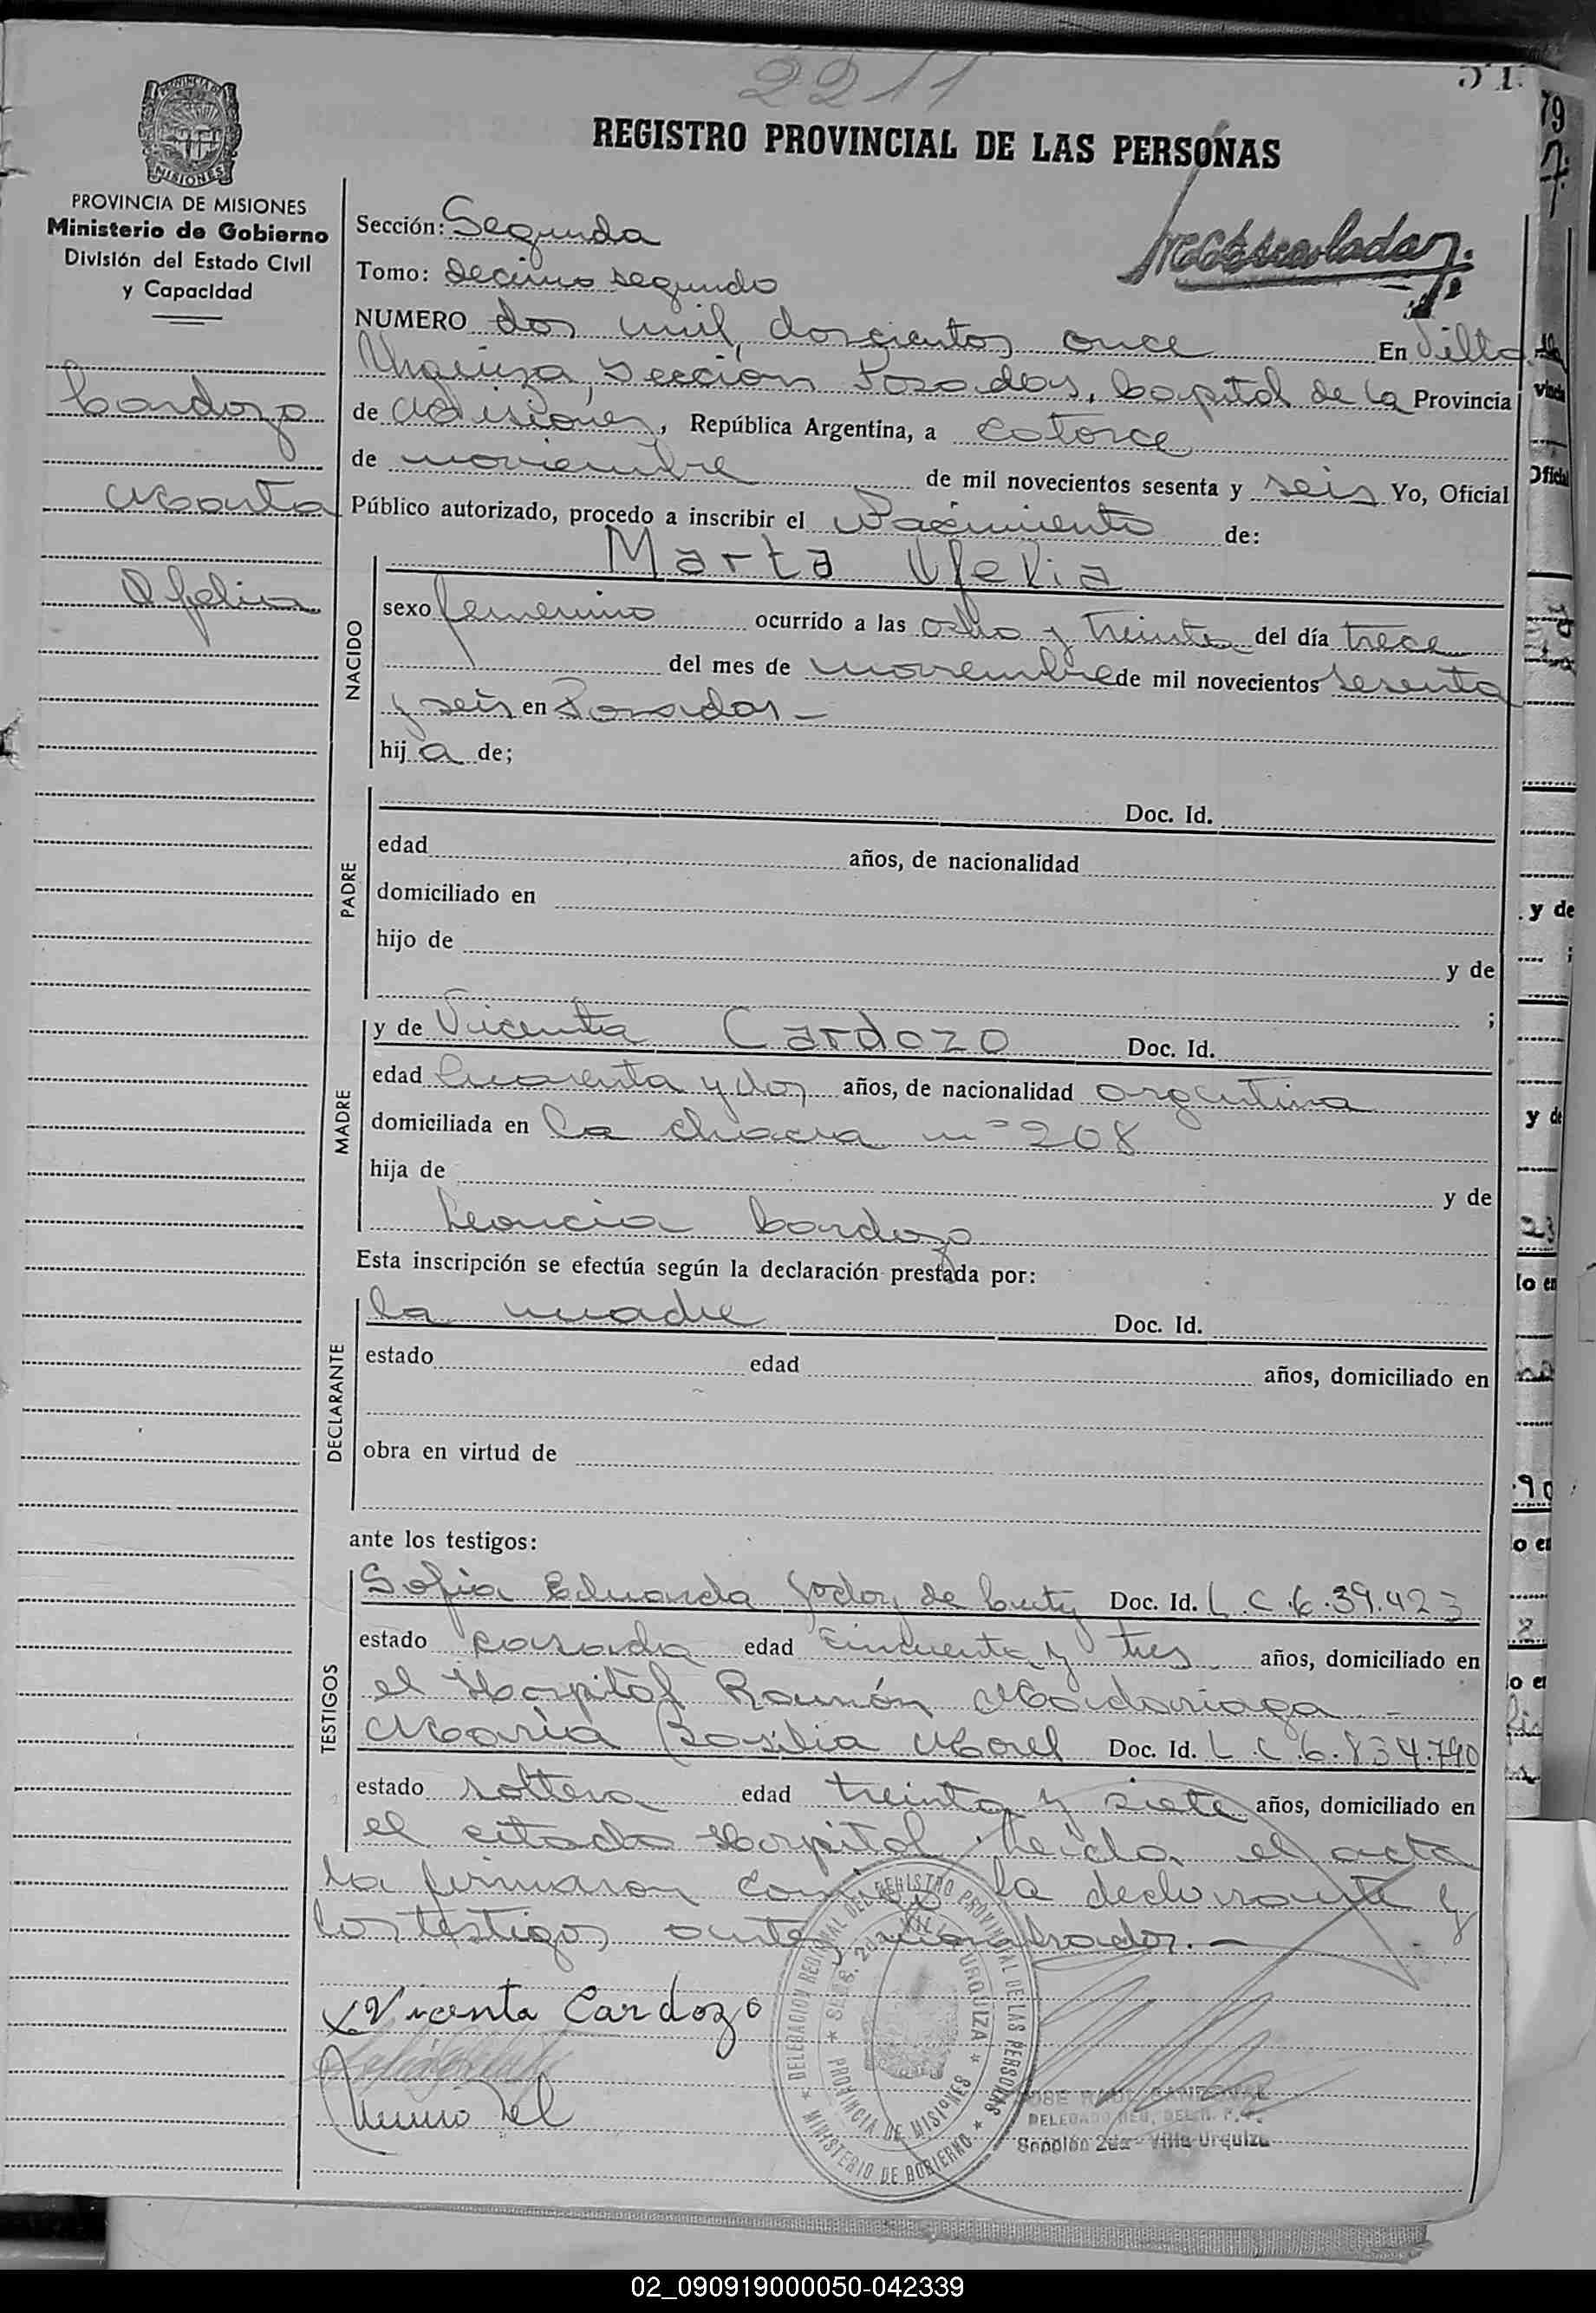 2211
51
79
REGISTRO PROVINCIAL DE LAS PERSONAS
MISIONES
PROVINCIA DE MISIONES
Ministerio de Gobierno
División del Estado Civil
y Capacidad
Cardozo
Marta
Ofelia
Sección: Segunda
Tomo: Décimo segundo
NUMERO dos mil doscientos once En Villa
Urquiza, Sección Posadas, Capital de la Provincia
de Misiones, República Argentina, a catorce
de noviembre de mil novecientos sesenta y seis Yo, Oficial
Público autorizado, procedo a inscribir el Nacimiento de:
Marta Ofelia
NACIDO
sexo femenino ocurrido a las ocho y treinta del día trece
del mes de noviembre de mil novecientos sesenta
y seis en Posadas -
hija de;
PADRE
Doc. Id.
edad años, de nacionalidad
domiciliado en
hijo de y de
;
MADRE
y de Vicenta Cardozo Doc. Id.
edad Cuarenta y dos años, de nacionalidad argentina
domiciliada en la chacra nº 208
hija de y de
Leoncia Cardozo
Esta inscripción se efectúa según la declaración prestada por:
DECLARANTE
la madre Doc. Id.
estado edad años, domiciliado en
obra en virtud de
ante los testigos:
TESTIGOS
Sofia Eduarda Godoy de Doc. Id. L.C.6.39.423
estado casada edad cincuenta y tres años, domiciliado en
el Hospital Ramón Madariaga -
María Basilia Morel Doc. Id. L.C.6.834.790
estado soltera edad treinta y siete años, domiciliado en
el citado Hospital. Leída el acta
la firmaron conmigo la declarante y
los testigos antes nombrados. -
x Vicenta Cardozo
DELEGACION REGIONAL DEL REGISTRO PROVINCIAL DE LAS PERSONAS
MINISTERIO DE GOBIERNO
VILLA URQUIZA
PROVINCIA DE MISIONES
Sección 2da - Villa Urquiza
02_090919000050-042339